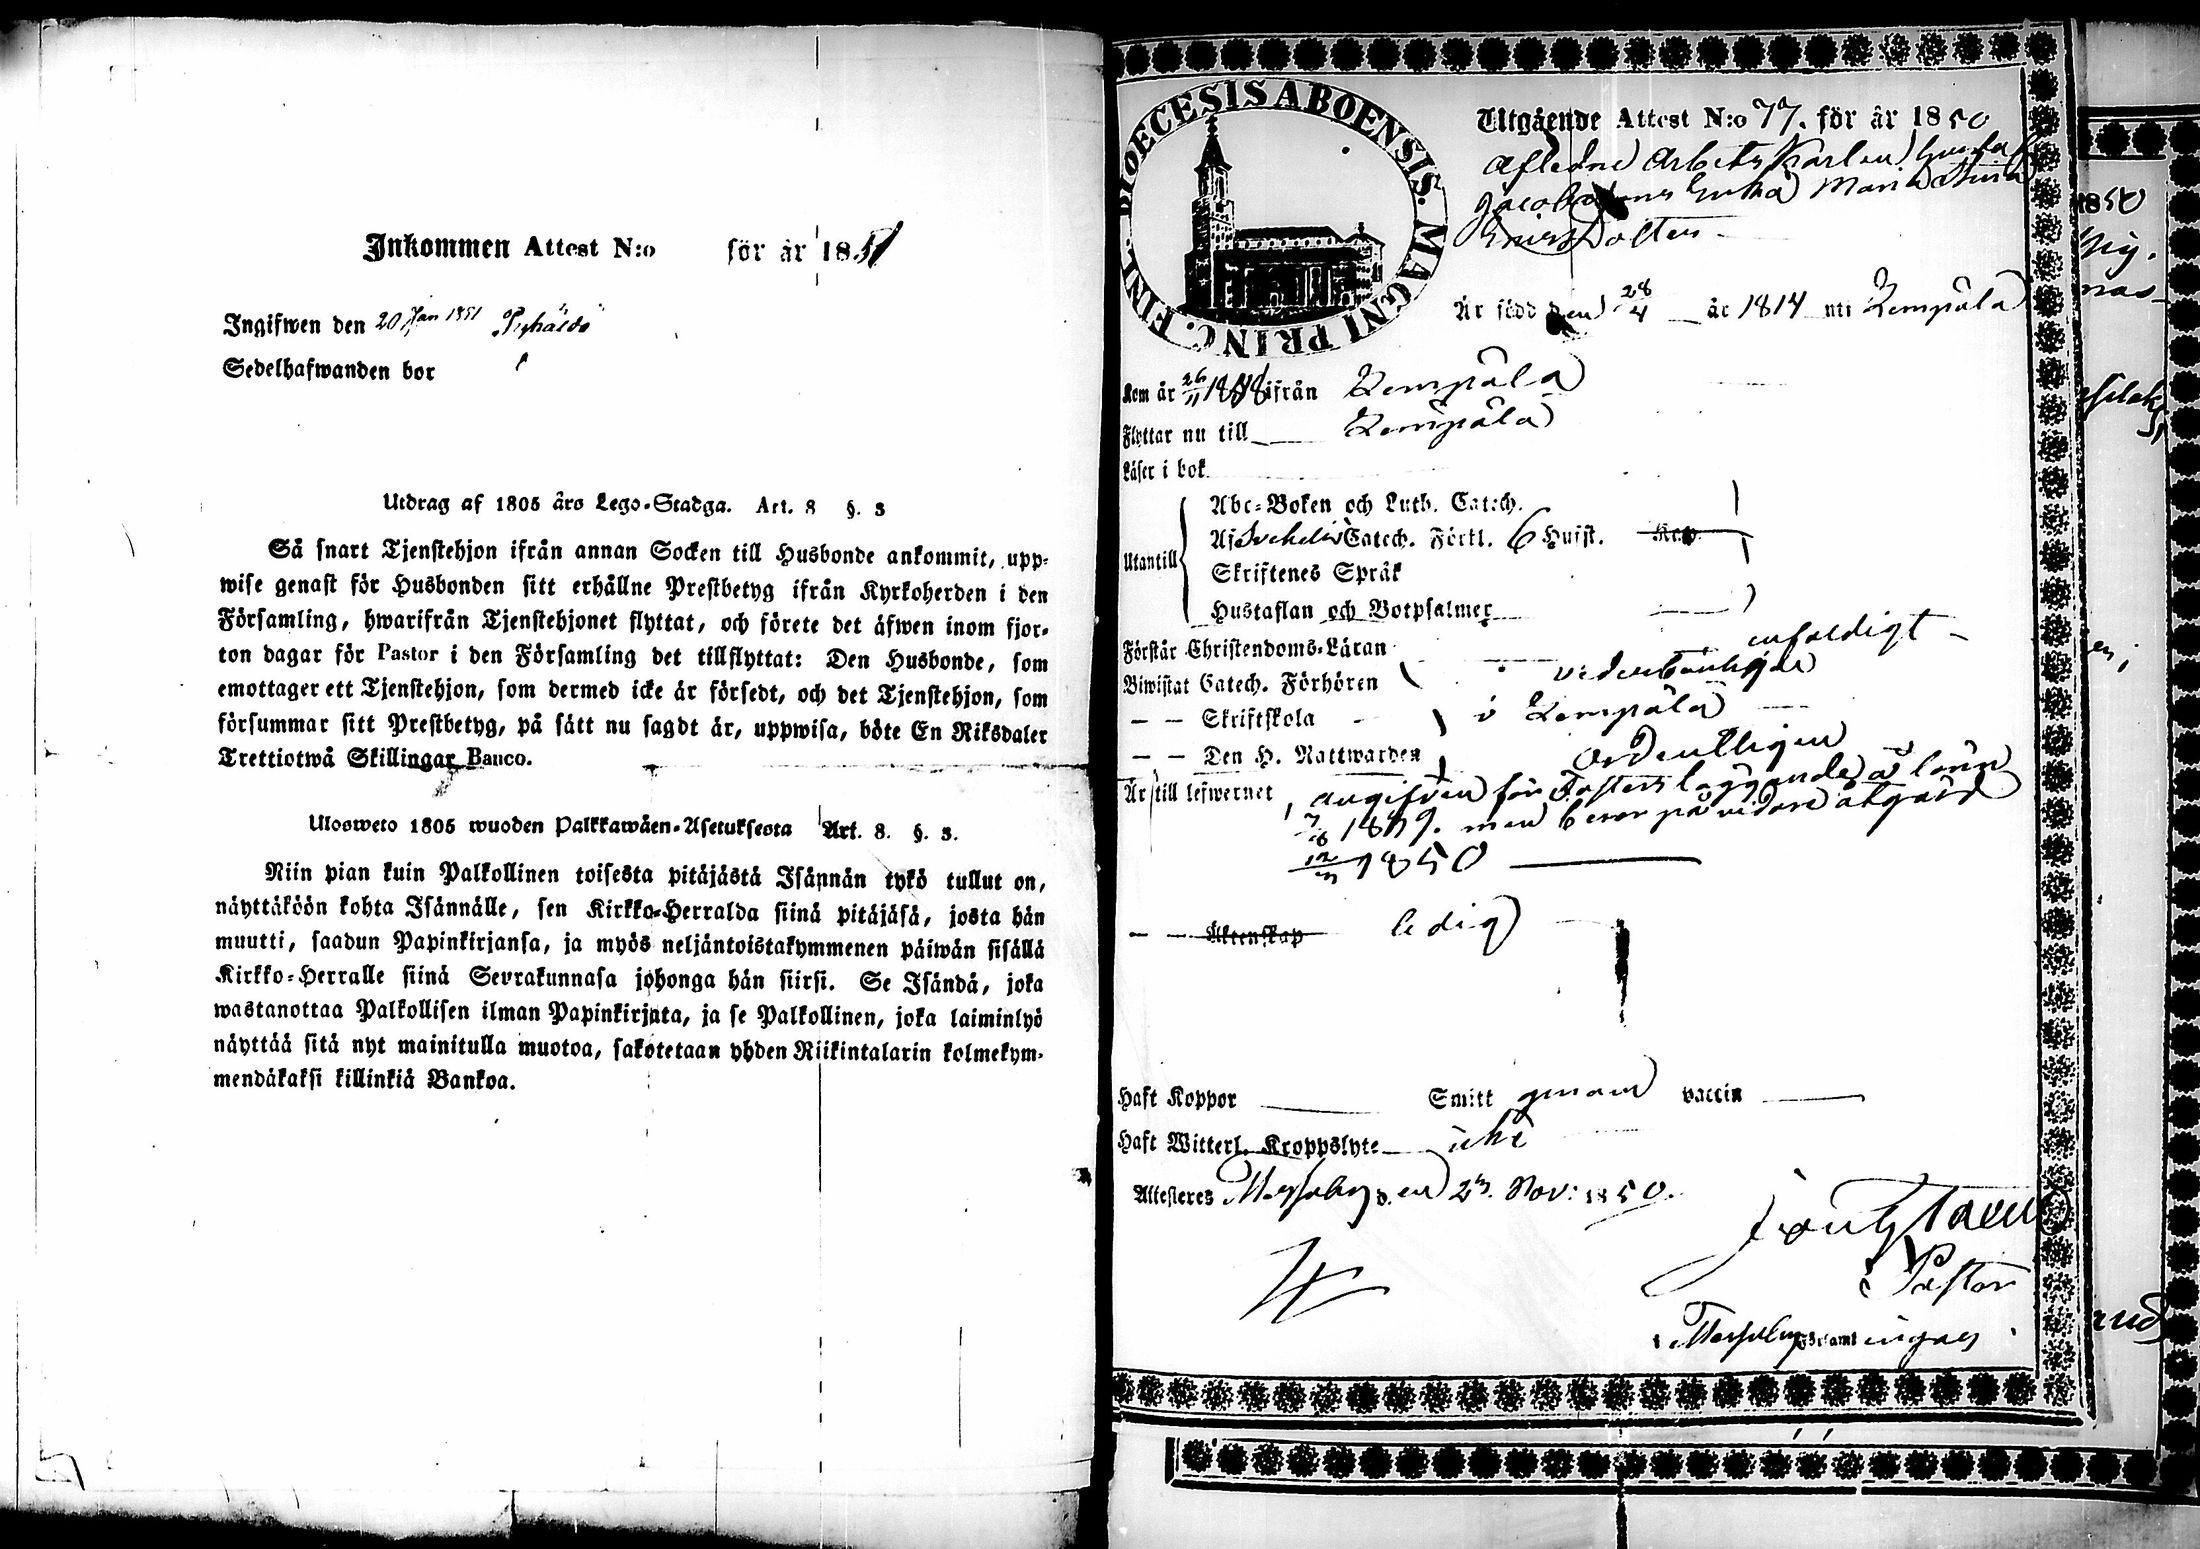 Inkommen Attest N:o för år 1851
Ingifwen den 20 Jan 1851
Sedelhafwanden bor
Utdrag af 1805 års Lego-Stadga. Art. 8 §. 3
Så snart Tjenstehjon ifrån annan Socken till Husbonde ankommit, upp-
wise genast för Husbonden sitt erhållne Prestbetyg ifrån Kyrkoherden i den
Församling, hwarifrån Tjenstehjonet flyttat, och förete det äfwen inom fjor-
ton dagar för Pastor i den Församling det tillflyttat: Den Husbonde, som
emottager ett Tjenstehjon, som dermed icke är försedt, och det Tjenstehjon, som
försummar sitt Prestbetyg, på sätt nu sagdt är, uppwisa, böte En Riksdaler
Trettiotwå Skillingar Banco.
Ulosweto 1805 wuoden Palkkawäen-Asetuksesta Art. 8. §. 3.
Niin pian kuin Palkollinen toisesta pitäjästä Isännän tykö tullut on,
näyttäköön kohta Isännälle, sen Kirkko-Herralda siinä pitäjäsä, josta hän
muutti, saadun Papinkirjansa, ja myös neljäntoistakymmenen päiwän sisällä
Kirkko-Herralle siinä Seurakunnasa johonga hän siirsi. Se Isändä, joka
wastanottaa Palkollisen ilman Papinkirjata, ja se Palkollinen, joka laiminlyö
näyttää sitä nyt mainitulla muotoa, sakotetaan yhden Riikintalarin kolmekym-
mendäkaksi killinkiä Bankoa.
DIOECESIS ABOENSIS. MAGNI PRINC. FINL.
Utgående Attest N:o 77. för år 1850
aflidne Arbets Karlen Gustaf
Jacobssons Enka Maria Stina
Ersdotter
Är född den 28/4 år 1814 uti Lempäla
Kom år 26/11 18 ifrån Lempäla
Flyttar nu till Lempäla
Läser i bok
Utantill
Abc-Boken och Luth. Catech.
Af Svebelii Catech. Förkl. 6 Hufst. Kap.
Skriftenes Språk
Hustaflan och Botpsalmer
Förstår Christendoms-Läran enfaldigt
Biwistat Catech. Förhören vederbörligen
— — Skriftskola i Lempäla
— — Den H. Nattwarden ordentligen
Är till lefwernet, angifven för Fosters läggande å lönn
1849. men beror på vidare åtgärd
1850
— — Äktenskap ledig
Haft Koppor Smitt genom vaccin
Haft Witterl. Kroppslyte icke
Attesteres den 23. Nov: 1850.
Pastor
i Församlingen